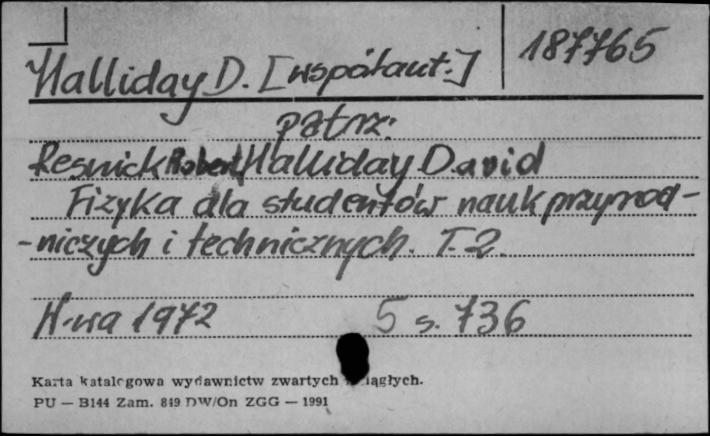 Halliday D. [współaut.] 187765
patrz:
Resnick Robert, Halliday David
Fizyka dla studentów nauk przyrod-
-niczych i technicznych. T. 2.
W-wa 1972 5 s. 736
Karta katalogowa wydawnictw zwartych i ciągłych.
PU — B144 Zam. 849 DW/On ZGG — 1991